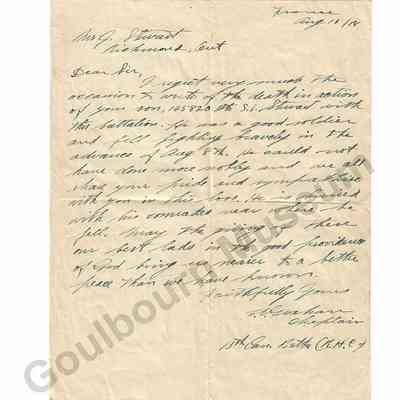 France
Aug 18/18
Mr J. Stewart
Richmond, Ont
Dear Sir,
I regret very much the
occasion to write of the death in action
of your son, 145820 Pte S. L. Stewart with
this battalion. He was a good soldier
and fell fighting bravely in the
advance of Aug 8th. He could not
have done more nobly and we all
share your pride and sympathise
with you in this loss. He is buried
with his comrades near where he
fell. May the giving of these
our best lads in the good providence
of God bring us nearer to a better
peace than we have known.
Faithfully Yours
Graham
Chaplain
13th Can. Battn (R.H.C.)
Goulbourn Museum